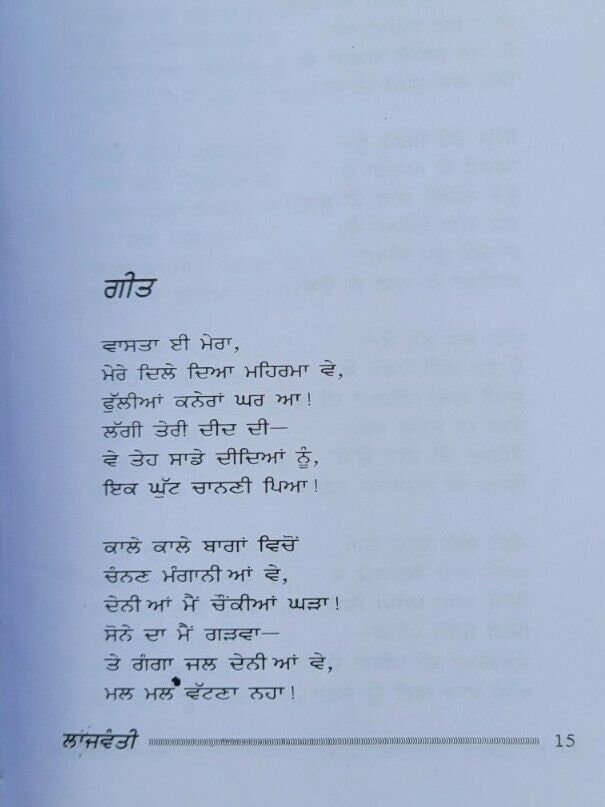 ਗੀਤ
ਵਾਸਤਾ ਈ ਮੇਰਾ,
ਮੇਰੇ ਦਿਲੇ ਦਿਆ ਮਹਿਰਮਾ ਵੇ,
ਫੁੱਲੀਆਂ ਕਨੇਰਾਂ ਘਰ ਆ!
ਲੱਗੀ ਤੇਰੀ ਦੀਦ ਦੀ—
ਵੇ ਤੇਹ ਸਾਡੇ ਦੀਦਿਆਂ ਨੂੰ,
ਇਕ ਘੁੱਟ ਚਾਨਣੀ ਪਿਆ!
ਕਾਲੇ ਕਾਲੇ ਬਾਗਾਂ ਵਿਚੋਂ
ਚੰਨਣ ਮੰਗਾਨੀਆਂ ਵੇ,
ਦੇਨੀਆਂ ਮੈਂ ਚੌਂਕੀਆਂ ਘੜਾ!
ਸੋਨੇ ਦਾ ਮੈਂ ਗੜਵਾ—
ਤੇ ਗੰਗਾ ਜਲ ਦੇਨੀਆਂ ਵੇ,
ਮਲ ਮਲ ਵੱਟਣਾ ਨਹਾ!
ਲਾਜਵੰਤੀ 15